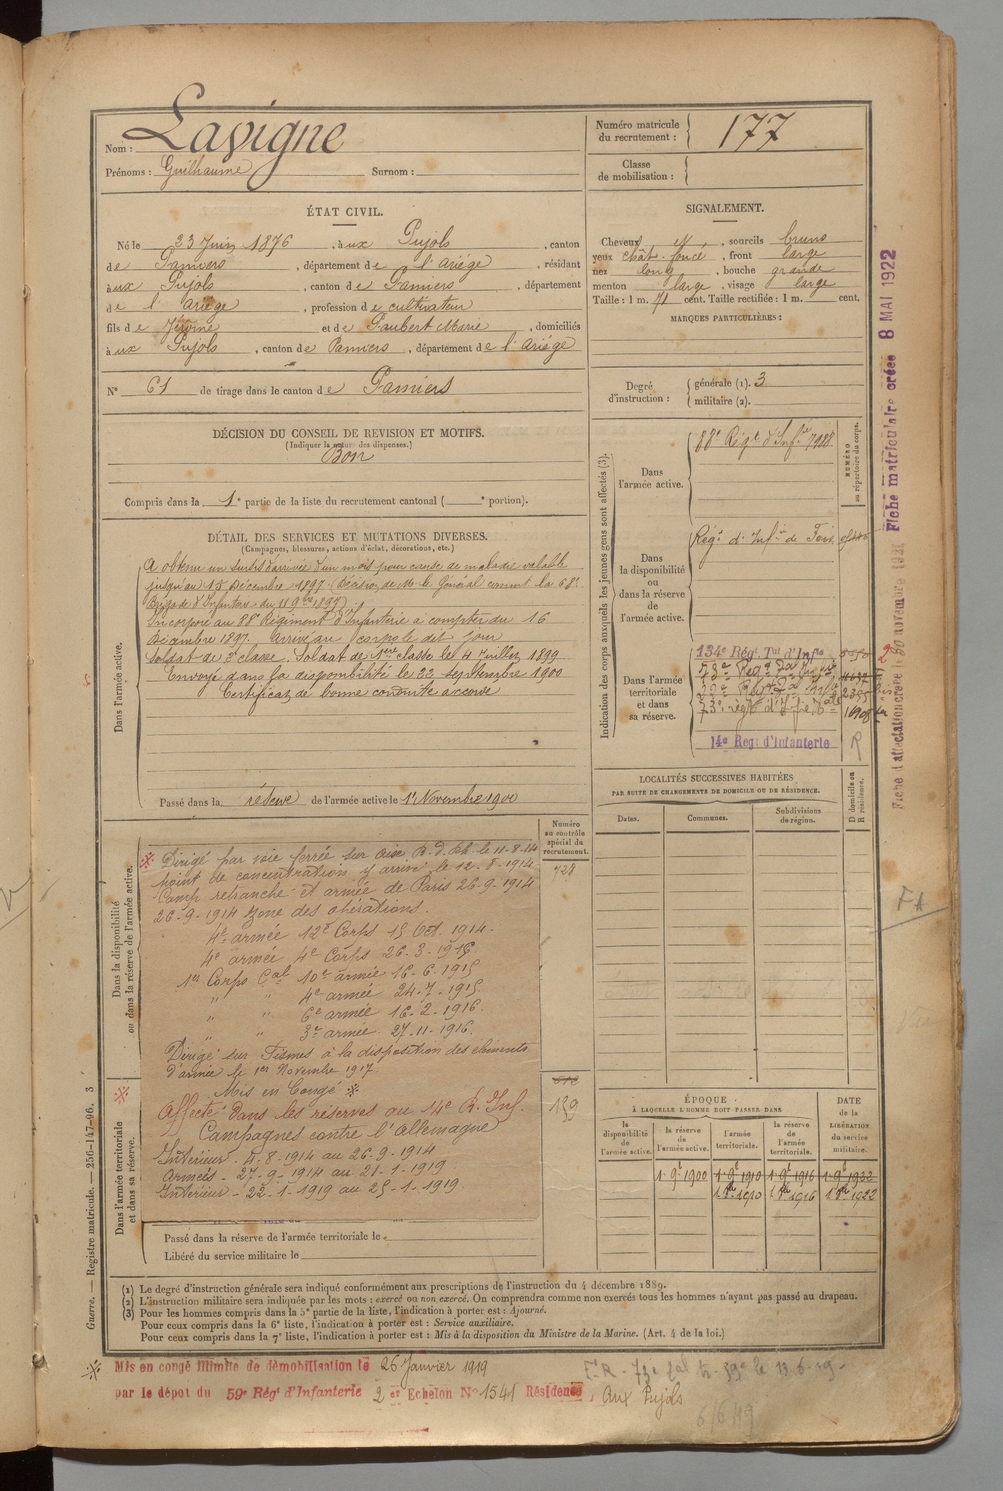 Nom : Lavigne
Prénoms : Guilhaume Surnom :
Numéro matricule du recrutement : 177
Classe de mobilisation :
ÉTAT CIVIL.
Né le 23 Juin 1876, à ux Pujols, canton
de Pamiers, département de l'Ariége, résidant
à ux Pujols, canton de Pamiers, département
de l'Ariége, profession de cultivateur
fils de et de Gaubert Marie, domiciliés
à ux Pujols, canton de Pamiers, département de l'Ariége
N° 61 de tirage dans le canton de Pamiers
DÉCISION DU CONSEIL DE REVISION ET MOTIFS.
(Indiquer la nature des dispenses.)
Bon
Compris dans la 1e partie de la liste du recrutement cantonal ( e portion).
SIGNALEMENT.
Cheveux et, sourcils bruns
yeux chât. foncé, front large
nez long, bouche grande
menton large, visage large
Taille : 1 m. 71 cent. Taille rectifiée : 1 m. cent.
MARQUES PARTICULIÈRES :
Degré d'instruction : générale (1). 3
militaire (2).
DÉTAIL DES SERVICES ET MUTATIONS DIVERSES.
(Campagnes, blessures, actions d'éclat, décorations, etc.)
Dans l'armée active.
A obtenu un sursis d'arrivée d'un mois pour cause de maladie valable
jusqu'au 15 Décembre 1897 (Décision de M. le Général commt la 68e
Brigade d'Infanterie du 11 9bre 1897)
Incorporé au 88e Régiment d'Infanterie à compter du 16
Décembre 1897. Arrivé au corps le dit jour
Soldat de 2e classe. Soldat de 1ère classe le 4 Juillet 1899
Envoyé dans la disponibilité le 22 septembre 1900
Certificat de bonne conduite accordé
Passé dans la réserve de l'armée active le 1er Novembre 1900
Indication des corps auxquels les jeunes gens sont affectés (3).
NUMÉRO au répertoire du corps.
Dans l'armée active.
88e Régt d'Infie 7988
Dans la disponibilité ou dans la réserve de l'armée active.
Régt d'Infie de Foix
Dans l'armée territoriale et dans sa réserve.
134e Rég. Tal d'Infie
2355
73e régt d'Infie Tale 16908
14e Régt d'Infanterie R
LOCALITÉS SUCCESSIVES HABITÉES
PAR SUITE DE CHANGEMENTS DE DOMICILE OU DE RÉSIDENCE.
Dates. Communes. Subdivisions de région.
D domicile ou R résidence.
Numéro au contrôle spécial du recrutement.
728
159
Dans la disponibilité ou dans la réserve de l'armée active.
Dirigé par voie ferrée sur le 11-8-14
point de concentration y arrivé le 12-8-1914
Camp retranché et armée de Paris 26-9-1914
26-9-1914 Zone des opérations.
4e armée 12e Corps 15 Oct. 1914.
4e armée 4e Corps 26-3-1915
1er Corps Cal 10e armée 16-6-1915
" " 4e armée 24-7-1915
" " 6e armée 16-2-1916.
" " 3e armée 27-11-1916.
Dirigé sur Fismes à la disposition des éléments
d'armée le 1er Novembre 1917
Mis en Congé
Affecté dans les réserves au 14e R. Inf.
Campagnes contre l'Allemagne
Intérieur - 4-8-1914 au 26-9-1914
Armées - 27-9-1914 au 21-1-1919
Intérieur - 22-1-1919 au 25-1-1919
Dans l'armée territoriale et dans sa réserve.
Passé dans la réserve de l'armée territoriale le
Libéré du service militaire le
ÉPOQUE
À LAQUELLE L'HOMME DOIT PASSER DANS
DATE de la LIBÉRATION du service militaire.
la disponibilité de l'armée active.
la réserve de l'armée active.
l'armée territoriale.
la réserve de l'armée territoriale.
1-9e 1900 1-9e 1910 1-9e 1916 1-9e 1922
1910 1916 1922
(1) Le degré d'instruction générale sera indiqué conformément aux prescriptions de l'instruction du 4 décembre 1889.
(2) L'instruction militaire sera indiquée par les mots : exercé ou non exercé. On comprendra comme non exercés tous les hommes n'ayant pas passé au drapeau.
(3) Pour les hommes compris dans la 5e partie de la liste, l'indication à porter est : Ajourné.
Pour ceux compris dans la 6e liste, l'indication à porter est : Service auxiliaire.
Pour ceux compris dans la 7e liste, l'indication à porter est : Mis à la disposition du Ministre de la Marine. (Art. 4 de la loi.)
Guerre. — Registre matricule. — 256-147-96. 3
Mis en congé illimité de démobilisation le 26 Janvier 1919
par le dépôt du 59e Régt d'Infanterie 2 er Echelon N° 1541 Résidence, Aux Pujols
Fiche matriculaire créée 8 MAI 1922
Fiche d'affectation créée le 30 novembre 1921
FA
6/6/19